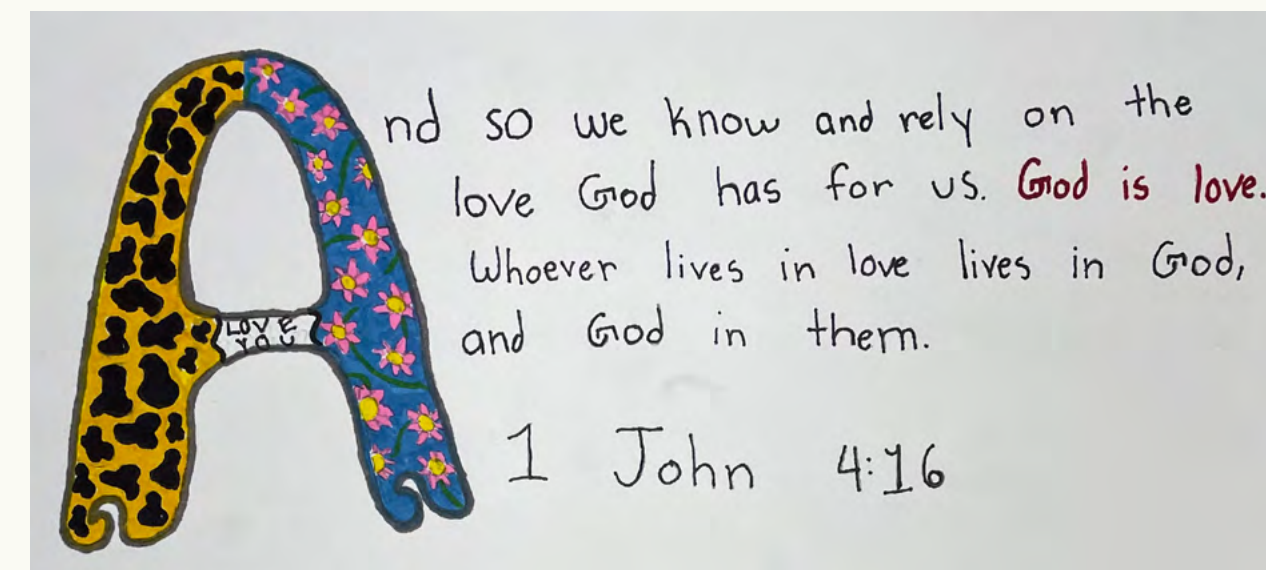 And so we know and rely on the
love God has for us. God is love.
Whoever lives in love lives in God,
and God in them.
1 John 4:16
LOVE
YOU